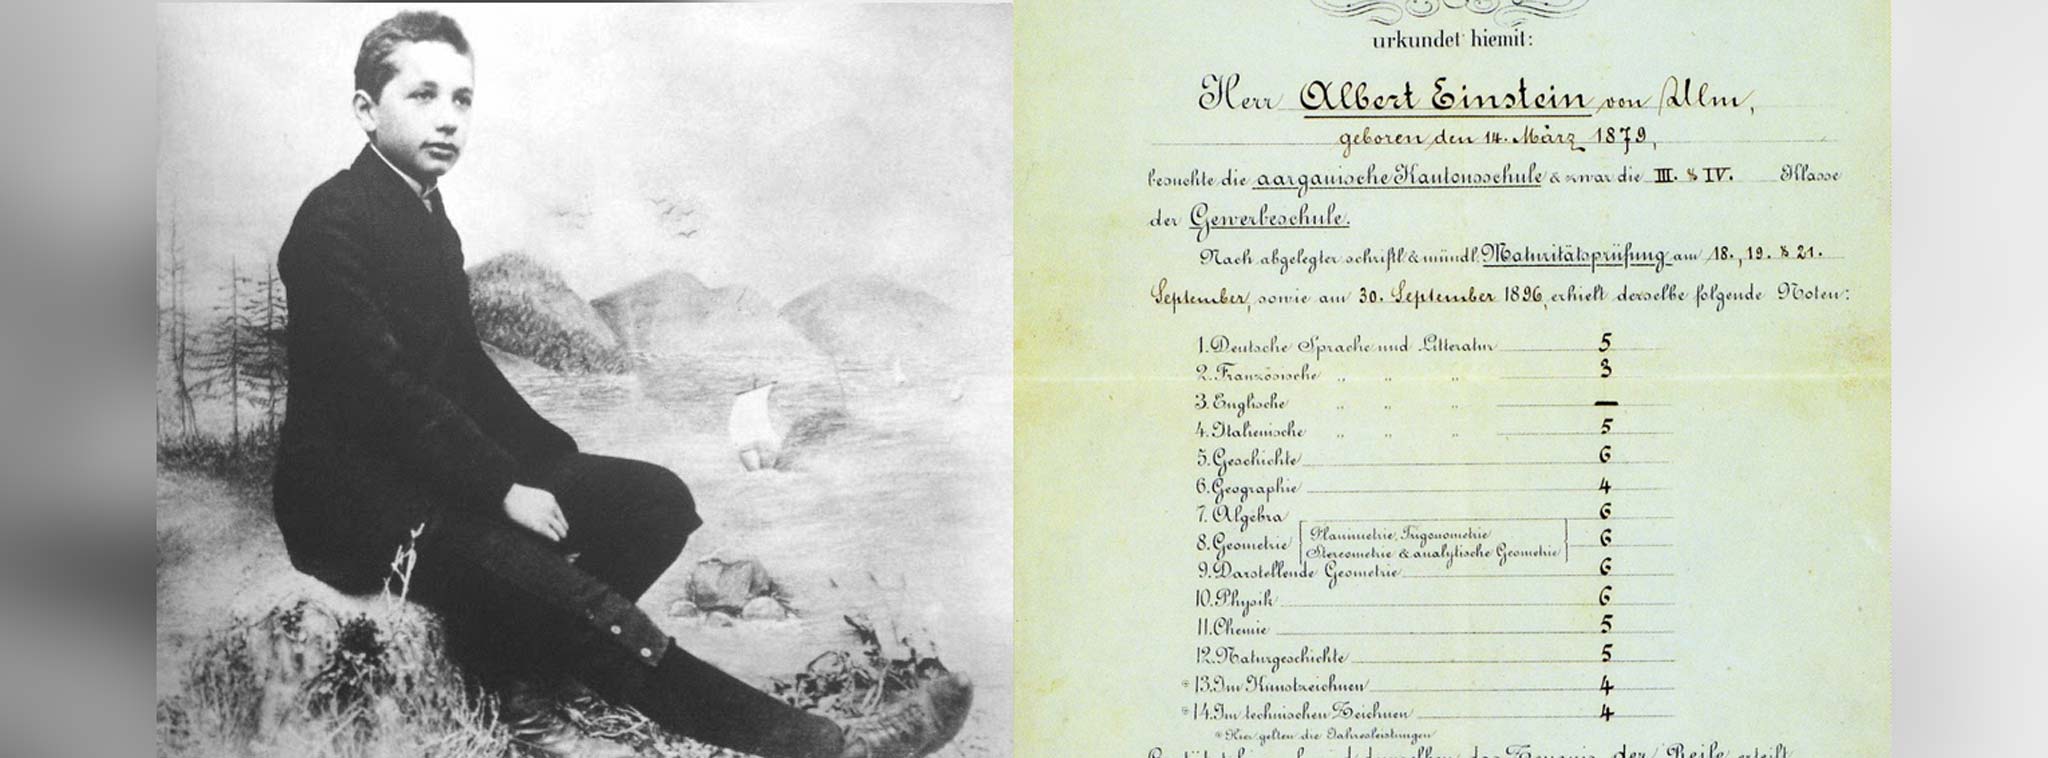 urkundet hiemit:
Herr Albert Einstein von Ulm,
geboren den 14. März 1879,
besuchte die aargauische Kantonsschule & zwar die III. & IV. Klasse
der Gewerbeschule.
Nach abgelegter schriftl. & mündl. Maturitätsprüfung am 18., 19. & 21.
September, sowie am 30. September 1896, erhielt derselbe folgende Noten:
1. Deutsche Sprache und Litteratur 5
2. Französische „ „ „ 3
3. Englische „ „ „ —
4. Italienische „ „ „ 5
5. Geschichte 6
6. Geographie 4
7. Algebra 6
8. Geometrie [Planimetrie, Trigonometrie
Stereometrie & analytische Geometrie] 6
9. Darstellende Geometrie 6
10. Physik 6
11. Chemie 5
12. Naturgeschichte 5
* 13. Im Kunstzeichnen 4
* 14. Im technischen Zeichnen 4
* Hier gelten die Jahresleistungen
der Reife erteilt